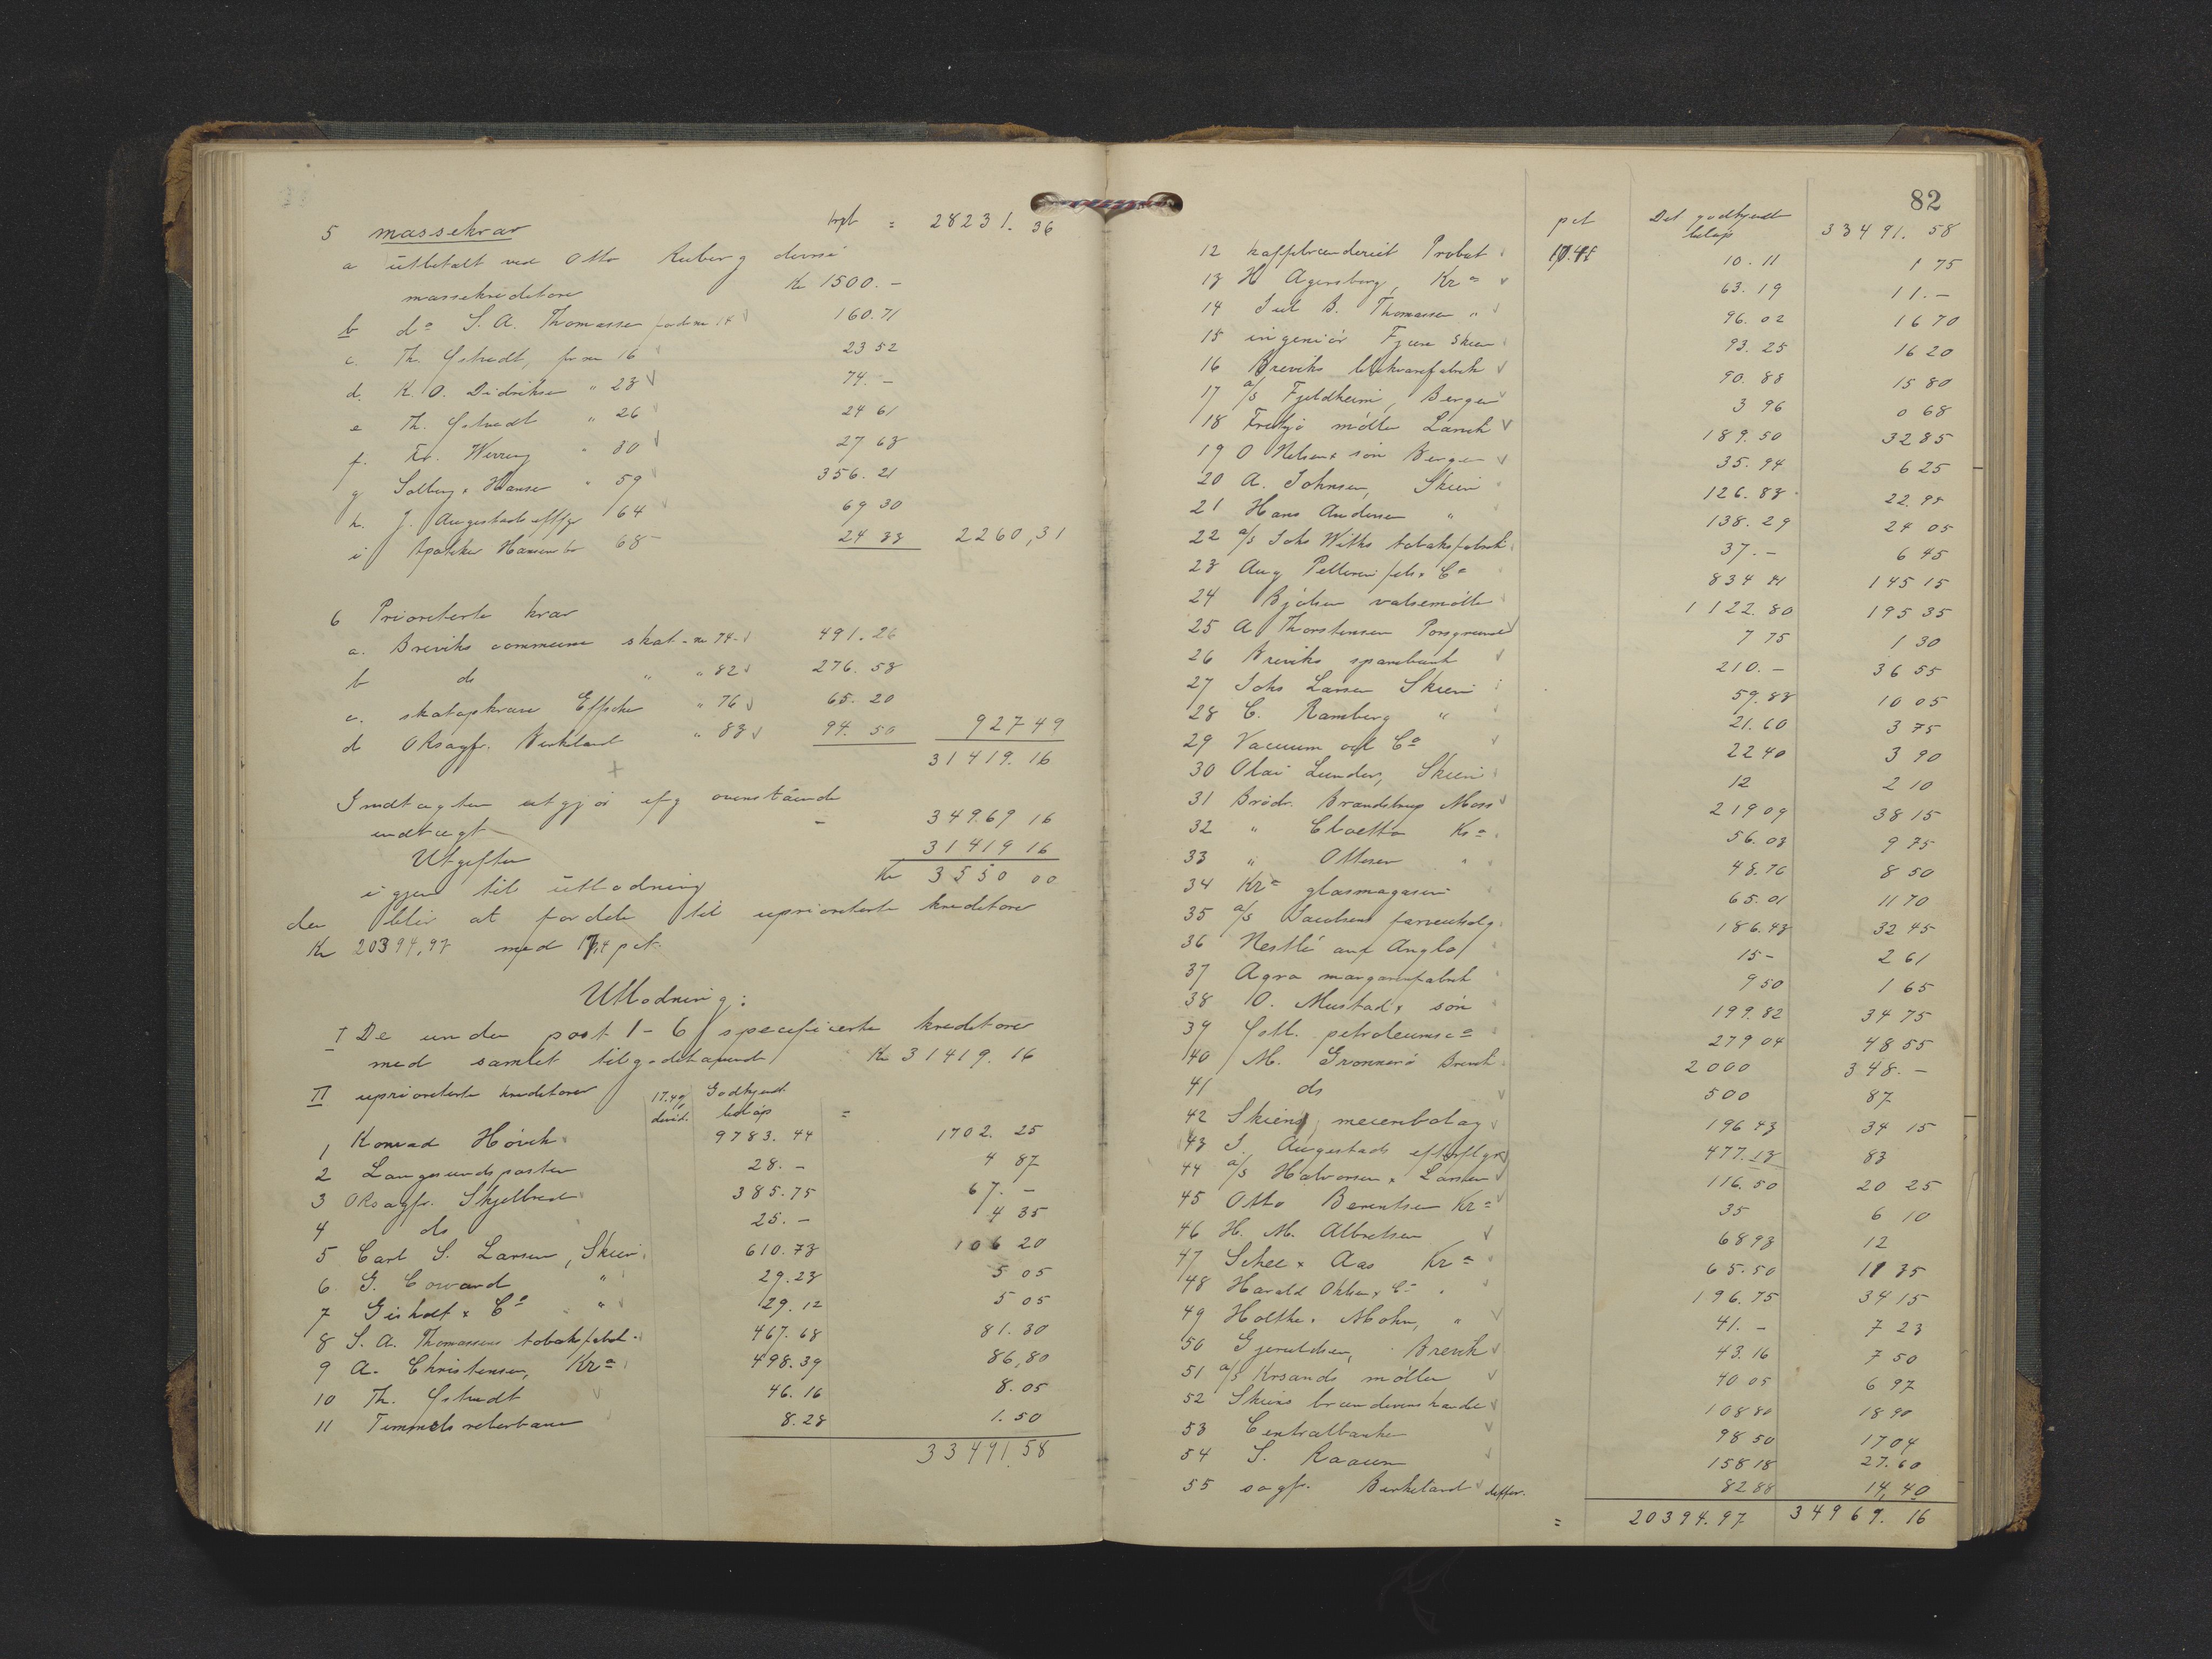 5 massekrav trpt = 28231. 36
a utbetalt ved Otto Auberg diverse
massekreditorer Kr 1500. –
b do S. A. Thomassen 14 160.71
c. Th. for nr 16 23 52
d. K. O. Didriksen " 23 74. –
e Th. " 26 24 61
f. Kr. Werring " 30 27 63
g Solberg & Hansen " 59 356. 21
h. J. Augestads eftfgr 64 69 30
i Apoteker Hansen 68 24 33 2260,31
6 Prioriterte krav
a. Breviks commune skat - nr 74 - 491. 26
b do " " 82 276. 53
c. skatopkræver " 76 65. 20
d O.R.sagfr. Birkeland " 83 94. 50 927 49
31419. 16
Indtægten utgjør efg ovenstående
indtægt – 34969 16
Utgifter 31419 16
igjen til utlodning Kr 3550 00
der blir at fordele til uprioriterte kreditorer
Kr 20394,97 med 17,4 pct.
Utlodning:
I De under post 1-6 specificerte kreditorer
med samlet tilgodehavende Kr 31419. 16
II uprioriterte kreditorer 17.4% divid. Godkjendt beløp =
1 Konrad Hörvik 9783. 44 1702. 25
2 Langesundsposten 28. – 4 87
3 O.R.sagfr. Skjelbred 385. 75 67. –
4 do 25. – 4 35
5 Carl S. Larsen, Skien 610. 73 106 20
6 G. Coward " 29. 23 5 05
7 Gisholt & Co " 29. 12 5 05
8 S. A. Thomassens tobaksfabrik 467. 68 81. 30
9 A. Christensen, Kra 498. 39 86,80
10 Th. 46. 16 8. 05
11 Timmels reberbane 8. 28 1. 50
33491. 58
82
pct Det godkjendte beløp 33491. 58
12 kaffebrænderiet Probat 17.4% 10. 11 1 75
13 H Agersborg, Kra 63. 19 11. –
14 Jul B. Thomassen " 96. 02 16 70
15 ingeniör Fjære Skien 93. 25 16 20
16 Breviks blikvarefabrik 90. 88 15 80
17 a/s Fjeldheim, Bergen 3 96 0 68
18 Fritzjö mölle Larvik 189. 50 32 85
19 O Nilsen & sön Bergen 35. 94 6 25
20 A. Johnsen, Skien 126. 83 22. 95
21 Hans Andersen " 138. 29 24 05
22 a/s Johs Withs tobaksfabrik 37. – 6 45
23 Aug Pellerin fils & Co 834 41 145 15
24 Bjölsen valsemölle 1122. 80 195 35
25 A Thorstensen Porsgrund 7 75 1 30
26 Breviks sparebank 210. – 36 55
27 Johs Larsen Skien 59. 83 10 05
28 C. Ramberg " 21. 60 3 75
29 Vacuum oil Co 22 40 3 90
30 Olai Lunder, Skien 12 2 10
31 Brödr. Brandstrup Moss 219 09 38 15
32 " Cloetta Kra 56. 03 9 75
33 " Ottesen " 48. 76 8 50
34 Kra glasmagasin 65. 01 11 70
35 a/s Jacobsens farvehdlg. 186. 43 32 45
36 Nestlé and Anglo 15 – 2 61
37 Agra margarinfabrik 9 50 1 65
38 O. Mustad & sön 199. 82 34 75
39 petroleumsco 279 04 48 55
40 M. Grönnerö Brevik 2000 348. –
41 do 500 87
42 Skiens meieribolag 196 43 34 15
43 J. Augestads efterflgr 477. 13 83
44 a/s Halvorsen & Larsen 116. 50 20 25
45 Otto Berentsen Kra 35 6 10
46 H. M. Albretsen 68 93 12
47 Schee & Aas Kra 65. 50 11 35
48 Harald Ohlsen & Co " 196. 75 34 15
49 Holthe & Mohn, " 41. – 7 23
50 Gjeruldsen, Brevik 43. 16 7 50
51 a/s Krsands mölle 40 05 6 97
52 Skiens brændevinshandel 108 80 18 90
53 Centralbanken 98 50 17 04
54 S. Raaum 158 18 27. 60
55 sagfr. Birkeland differ. 82 88 14, 40
= 20394. 97 34969. 16